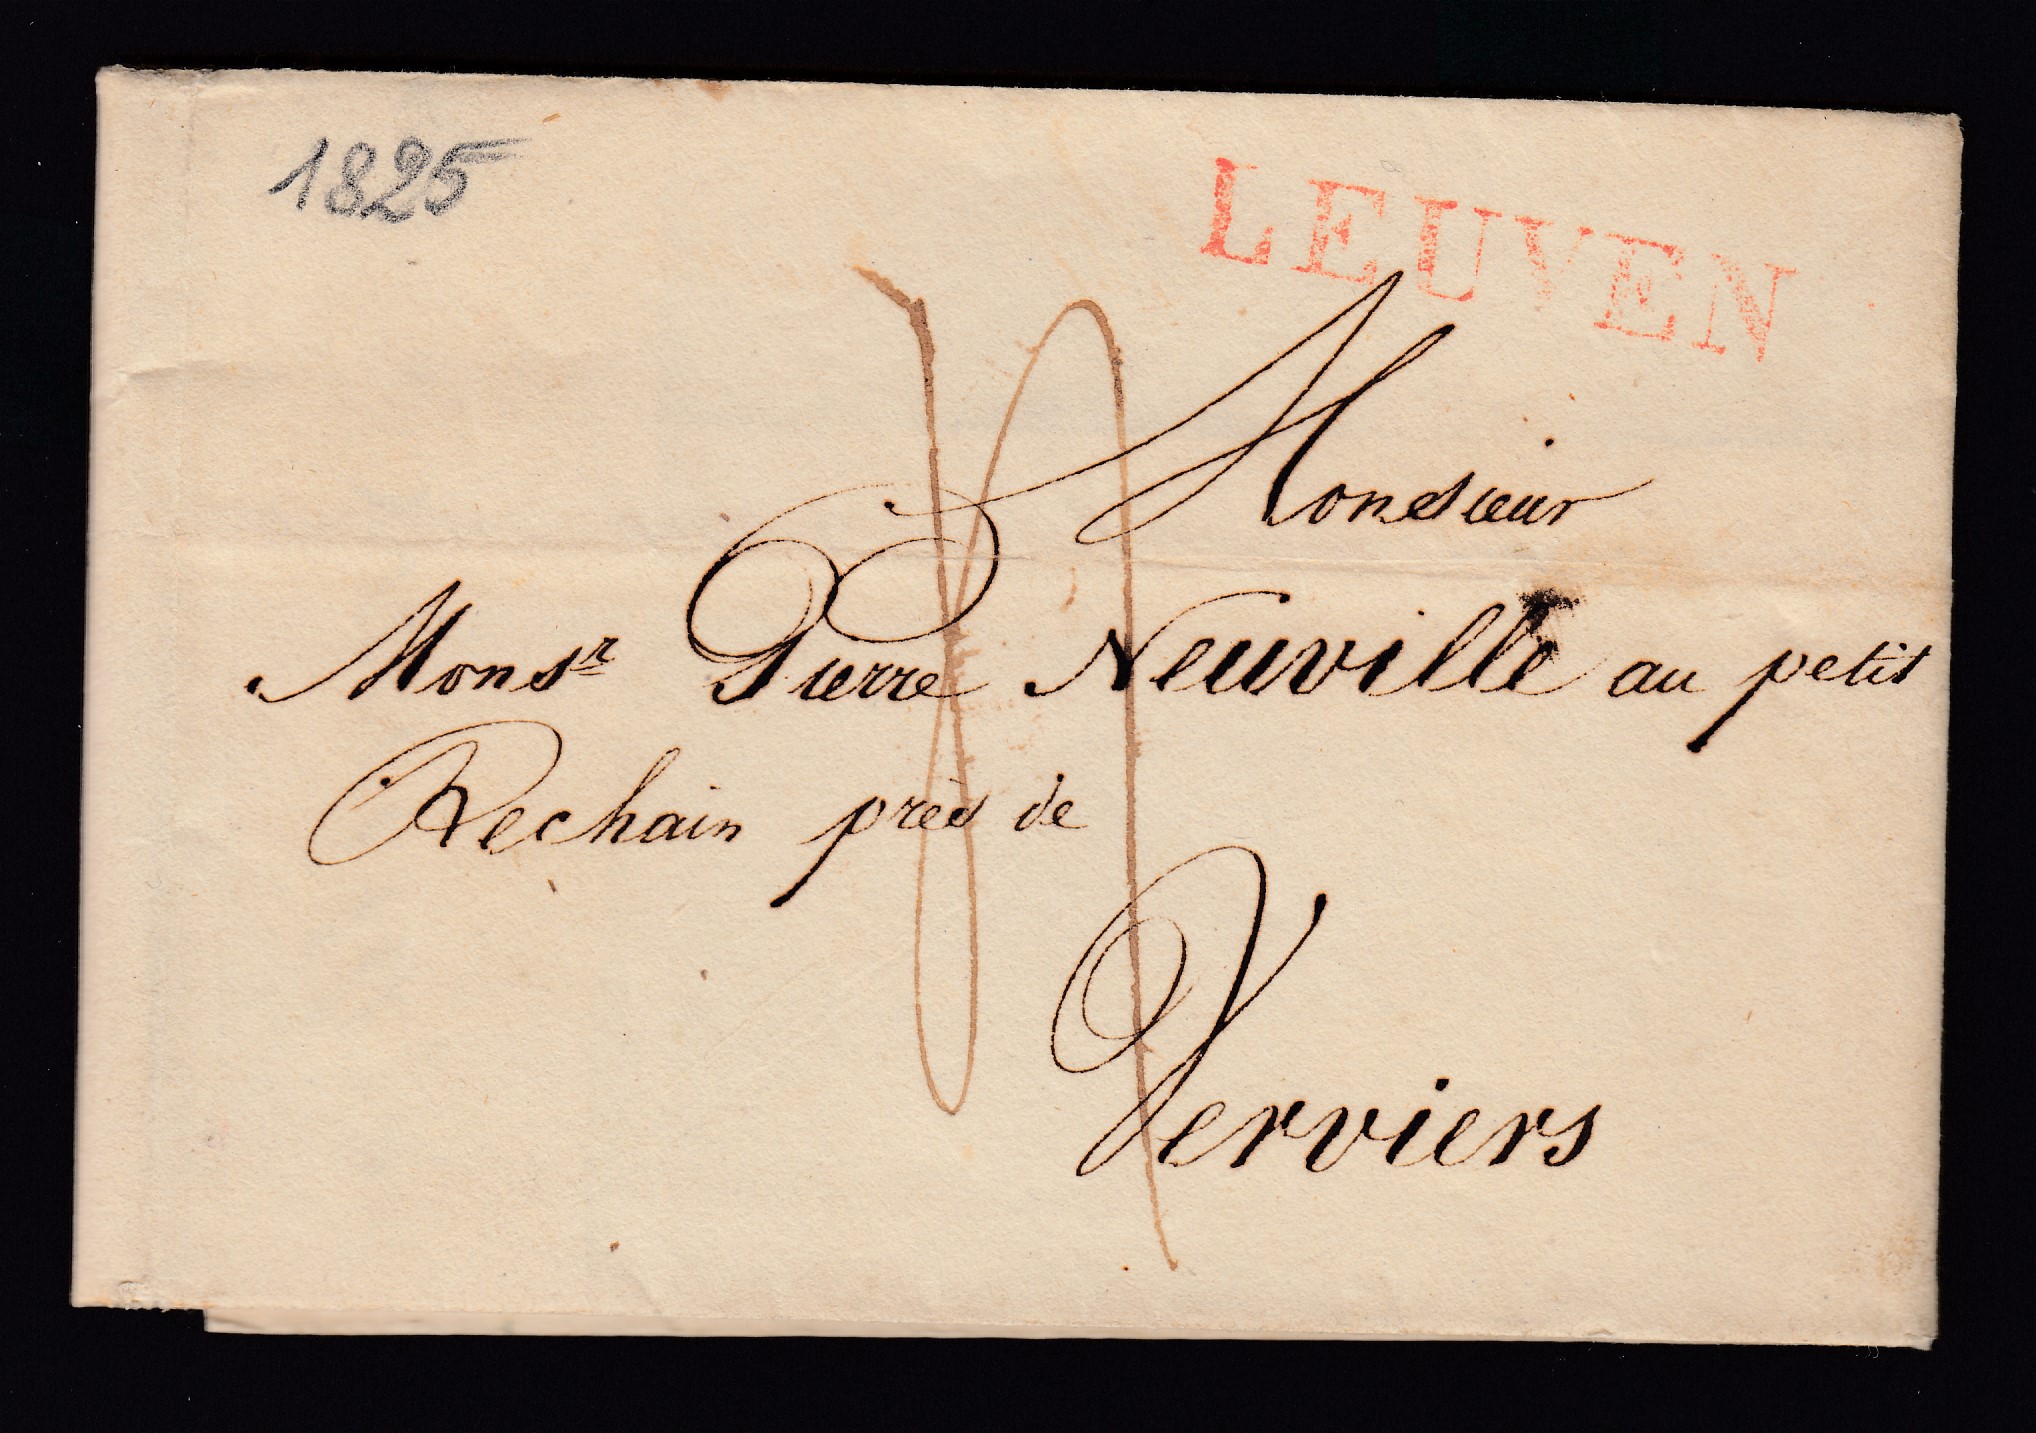 1825
LEUVEN
Monsieur
Monsr Pierre Neuville au petit
Rechain près de
Verviers